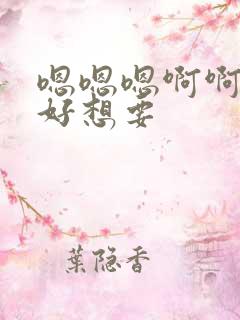 嗯嗯嗯啊啊
好想要
葉隐香